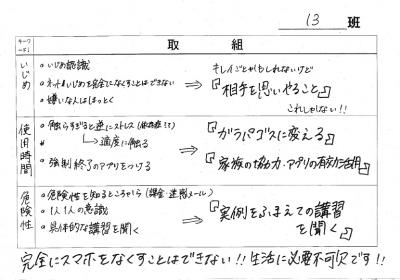 13 班
キーワード
取組
いじめ
・いじめ認識
・ネットいじめを完全になくすことはできない
・嫌いな人はほっとく
⇒ キレイごとかもしれないけど
『相手を思いやること』
これしかない!!
使用時間
・触らなすぎると逆にストレス(依存症で)
→適度に触る
・強制終了のアプリをつける
⇒ 『ガラパゴスに変える』
『家族の協力・アプリの有効活用』
危険性
・危険性を知るところから(課金・迷惑メール)
・1人1人の意識
・具体的な講習を開く
⇒ 『実例をふまえての講習を開く』
完全にスマホをなくすことはできない!! 生活に必要不可欠です!!